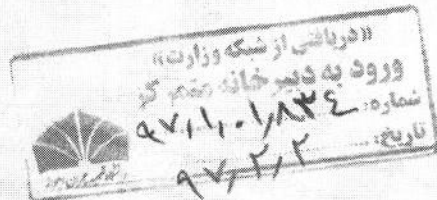 ((دریافتی از شبکه وزارت))
ورود به دبیرخانه متمرکز
شماره: ۹۷,۱,۰۱,۸۳۴
تاریخ: ۹۷,۲,۲